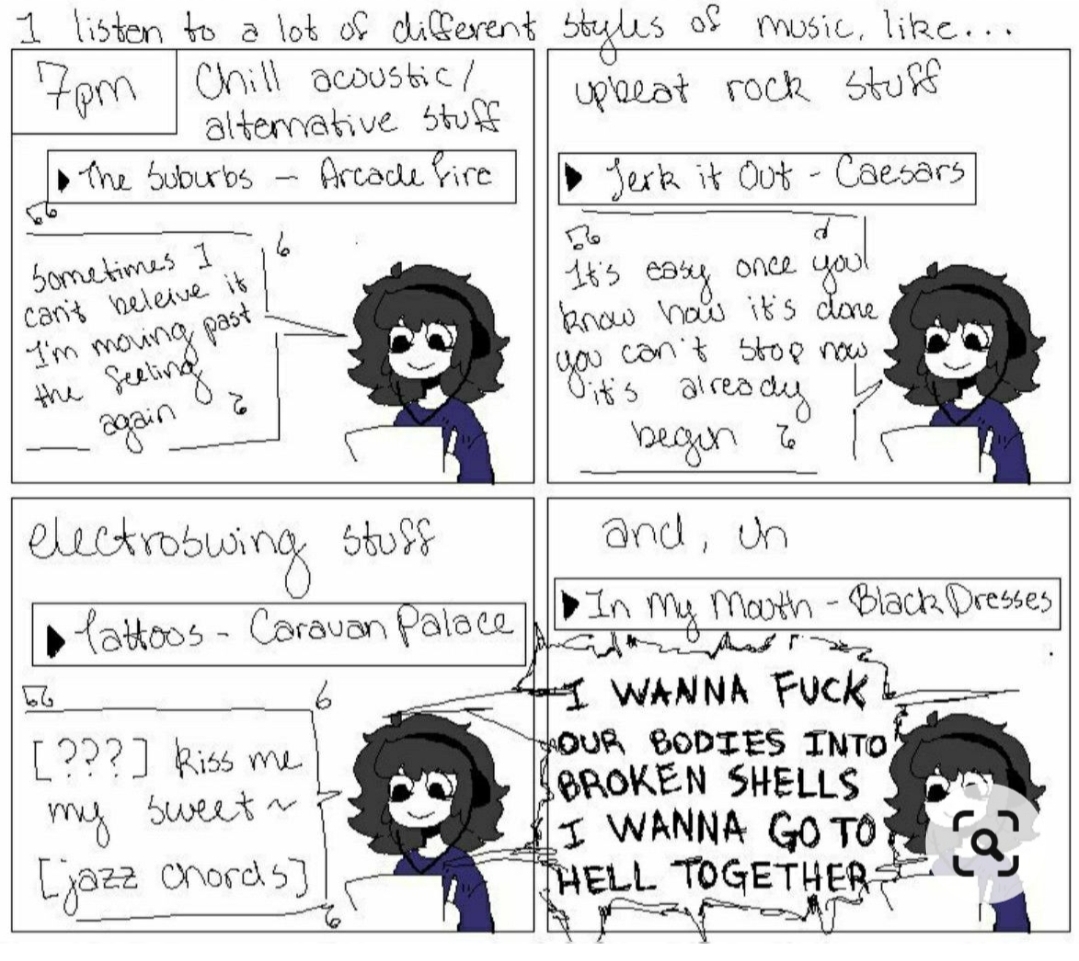 I listen to a lot of different styles of music, like...
7pm
Chill acoustic/
alternative stuff
The Suburbs - Arcade Fire
Sometimes I
can't beleive it
I'm moving past
the feeling
again
upbeat rock stuff
Jerk it Out - Caesars
It's easy once you
know how it's done
you can't stop now
it's already
begun
electroswing stuff
Tattoos - Caravan Palace
[???] kiss me
my sweet~
[jazz chords]
and, uh
In My Mouth - Black Dresses
I WANNA FUCK
OUR BODIES INTO
BROKEN SHELLS
I WANNA GO TO
HELL TOGETHER